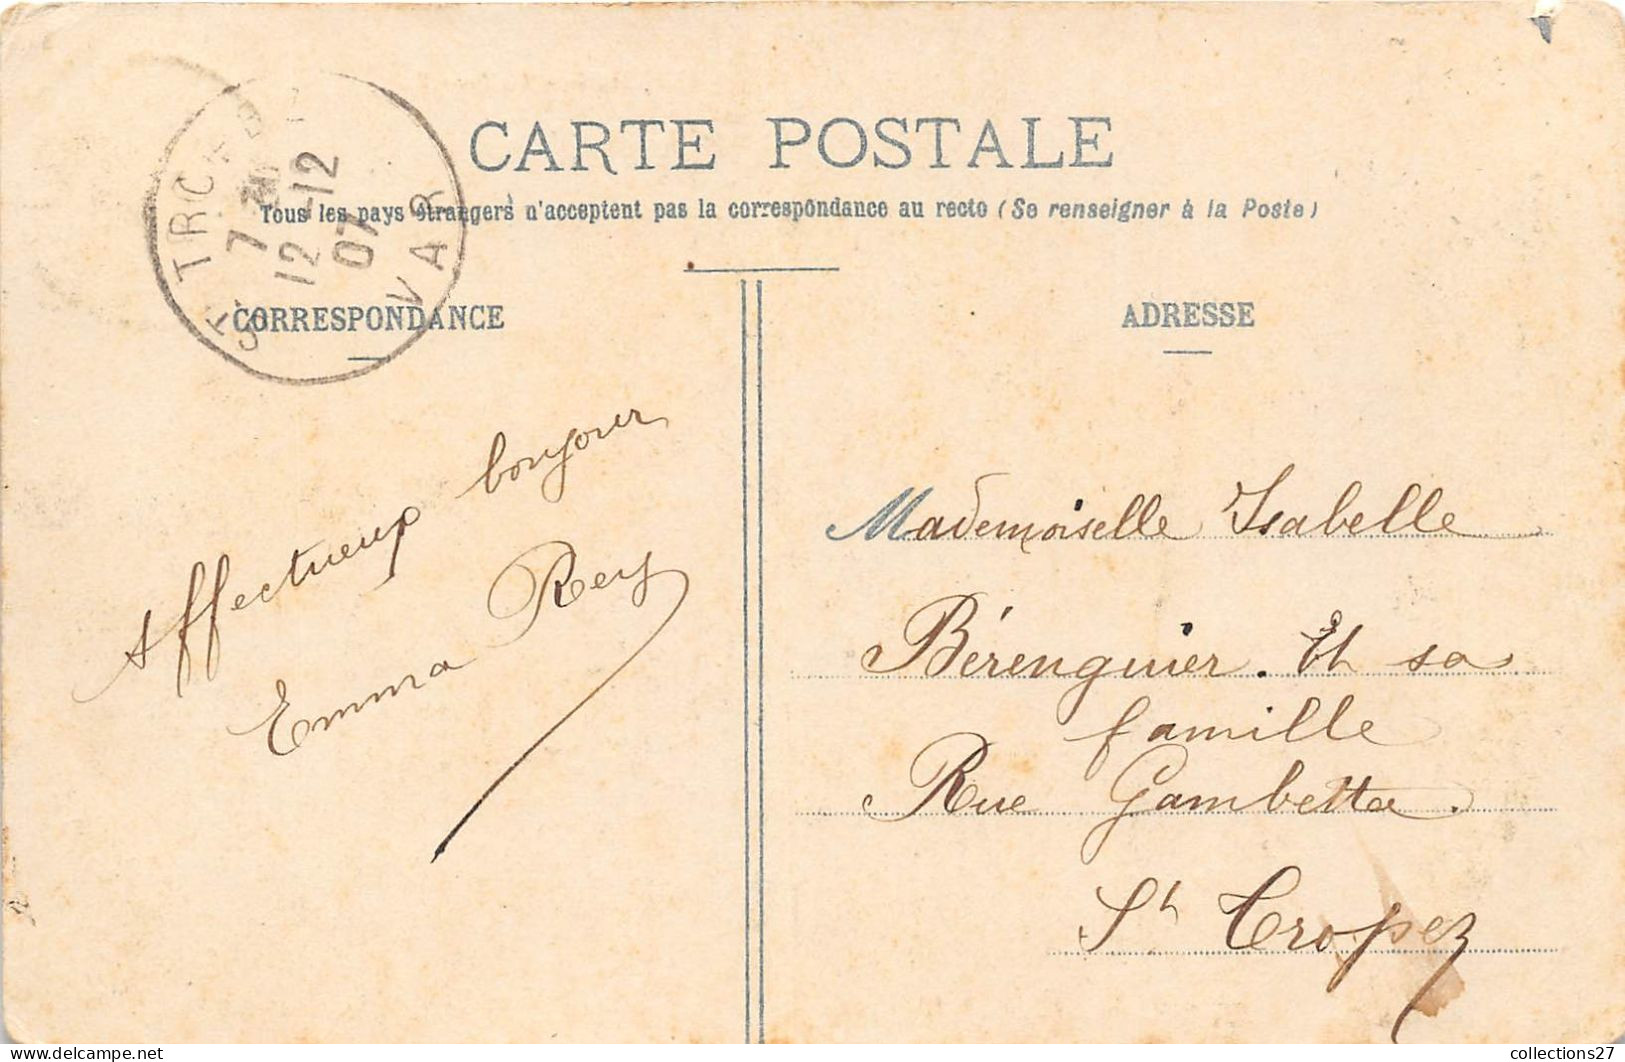 CARTE POSTALE
Tous les pays étrangers n'acceptent pas la correspondance au recto (Se renseigner à la Poste)
ST TROPEZ
7 12
12 07
VAR
CORRESPONDANCE
Affectueux bonjour
Emma Rey
ADRESSE
Mademoiselle Isabelle
Bérenguier. Et sa
famille
Rue Gambetta.
St Tropez
collections27